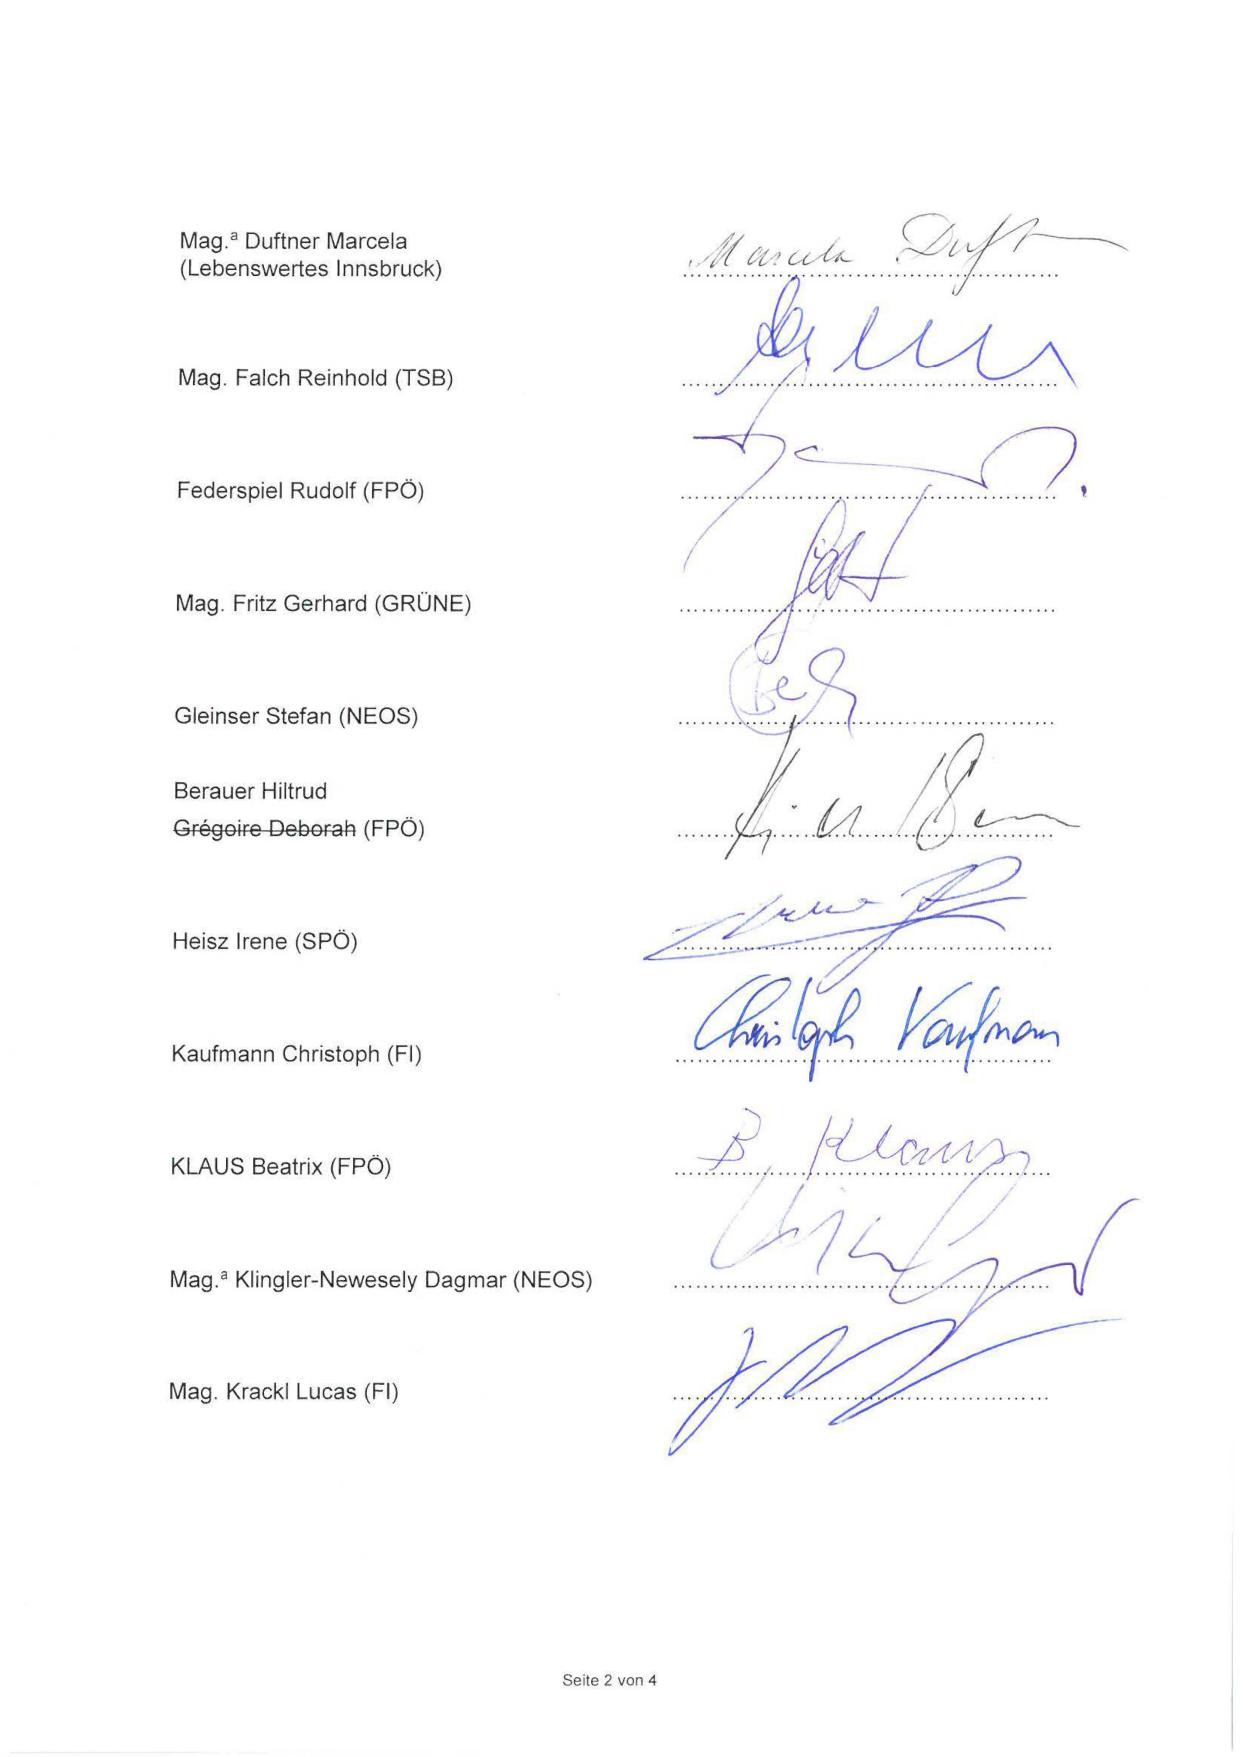 Mag.ª Duftner Marcela
(Lebenswertes Innsbruck)
Marcela Duft
Mag. Falch Reinhold (TSB)
Federspiel Rudolf (FPÖ)
Mag. Fritz Gerhard (GRÜNE)
Gleinser Stefan (NEOS)
Berauer Hiltrud
Grégoire Deborah (FPÖ)
Heisz Irene (SPÖ)
Kaufmann Christoph (FI)
Christoph Kaufmann
KLAUS Beatrix (FPÖ)
B. Klaus
Mag.ª Klingler-Newesely Dagmar (NEOS)
Mag. Krackl Lucas (FI)
Seite 2 von 4